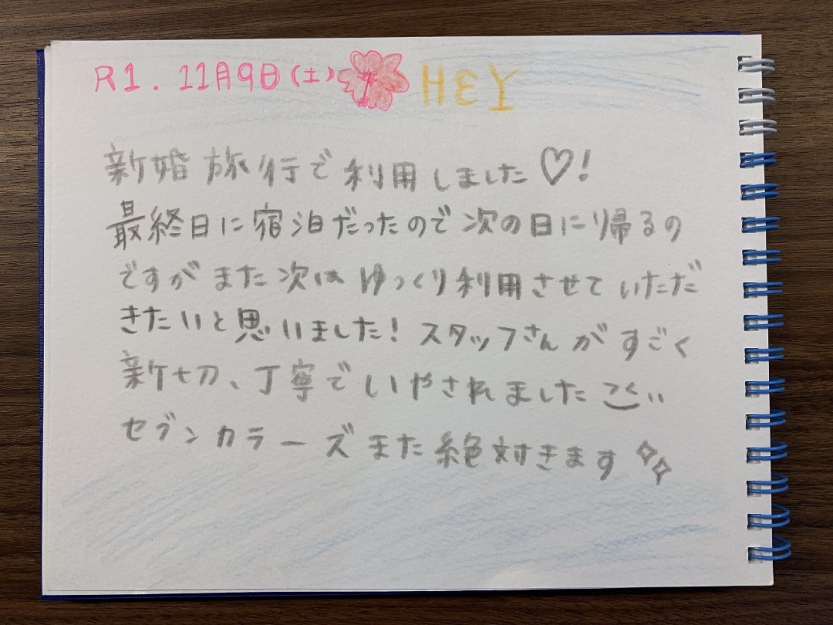 R1.11月9日(土) HEY
新婚旅行で利用しました♡!
最終日に宿泊だったので次の日に帰るの
ですがまた次はゆっくり利用させていただ
きたいと思いました! スタッフさんがすごく
新切、丁寧でいやされました
セブンカラーズまた絶対きます